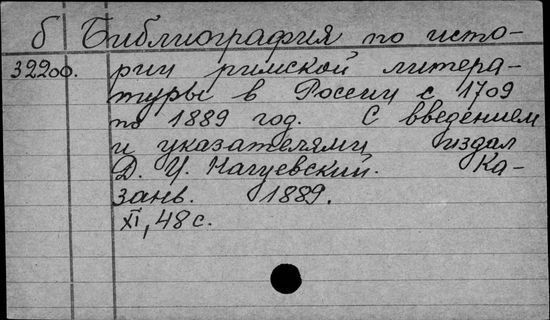 б Библиография по исто-
32200. рии римской литера-
туры в России с 1709
по 1889 год. С введением
и указателями издал
Д. И. Нагуевский. Ка-
зань. 1889.
XI, 48 с.